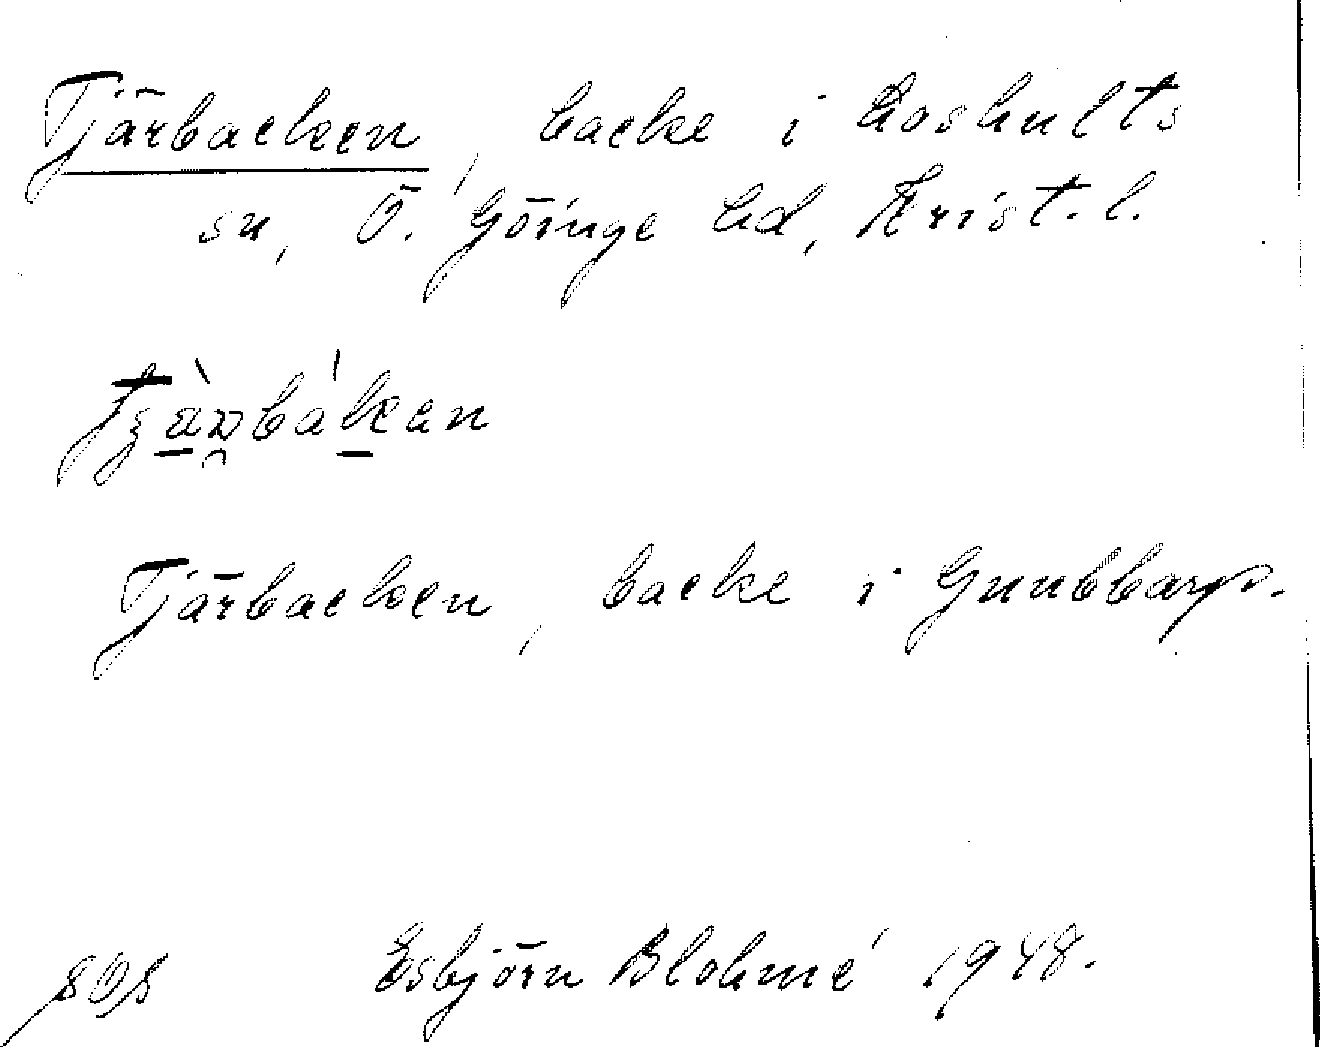 Tjärbacken, backe i Loshults
sn, Ö. Göinge hd, Krist. l.
Tjärbacken, backe i Gunbbarp.
Esbjörn Blohmé 1948.